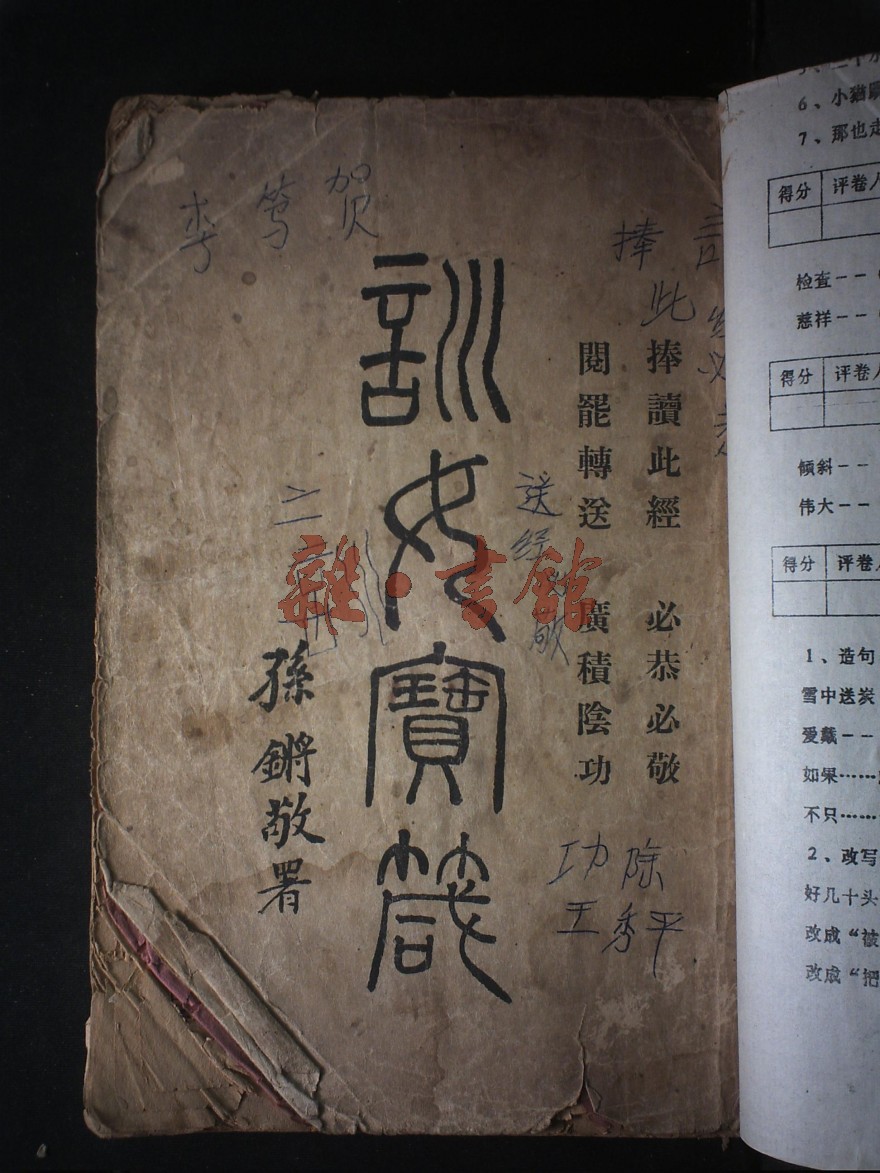 捧讀此經 必恭必敬
閱罷轉送 廣積陰功
訓女寶箴
孫鏘敬署
賀
篤
李
捧
此
送
经
敬
功 除
王秀平
雜·書館
6、小猫
7、那也走
得分 评卷人
检查--
慈祥--
得分 评卷人
倾斜--
伟大--
得分 评卷人
1、造句
雪中送炭
爱戴--
如果……
不只……
2、改写
好几十头
改成“被
改成“把